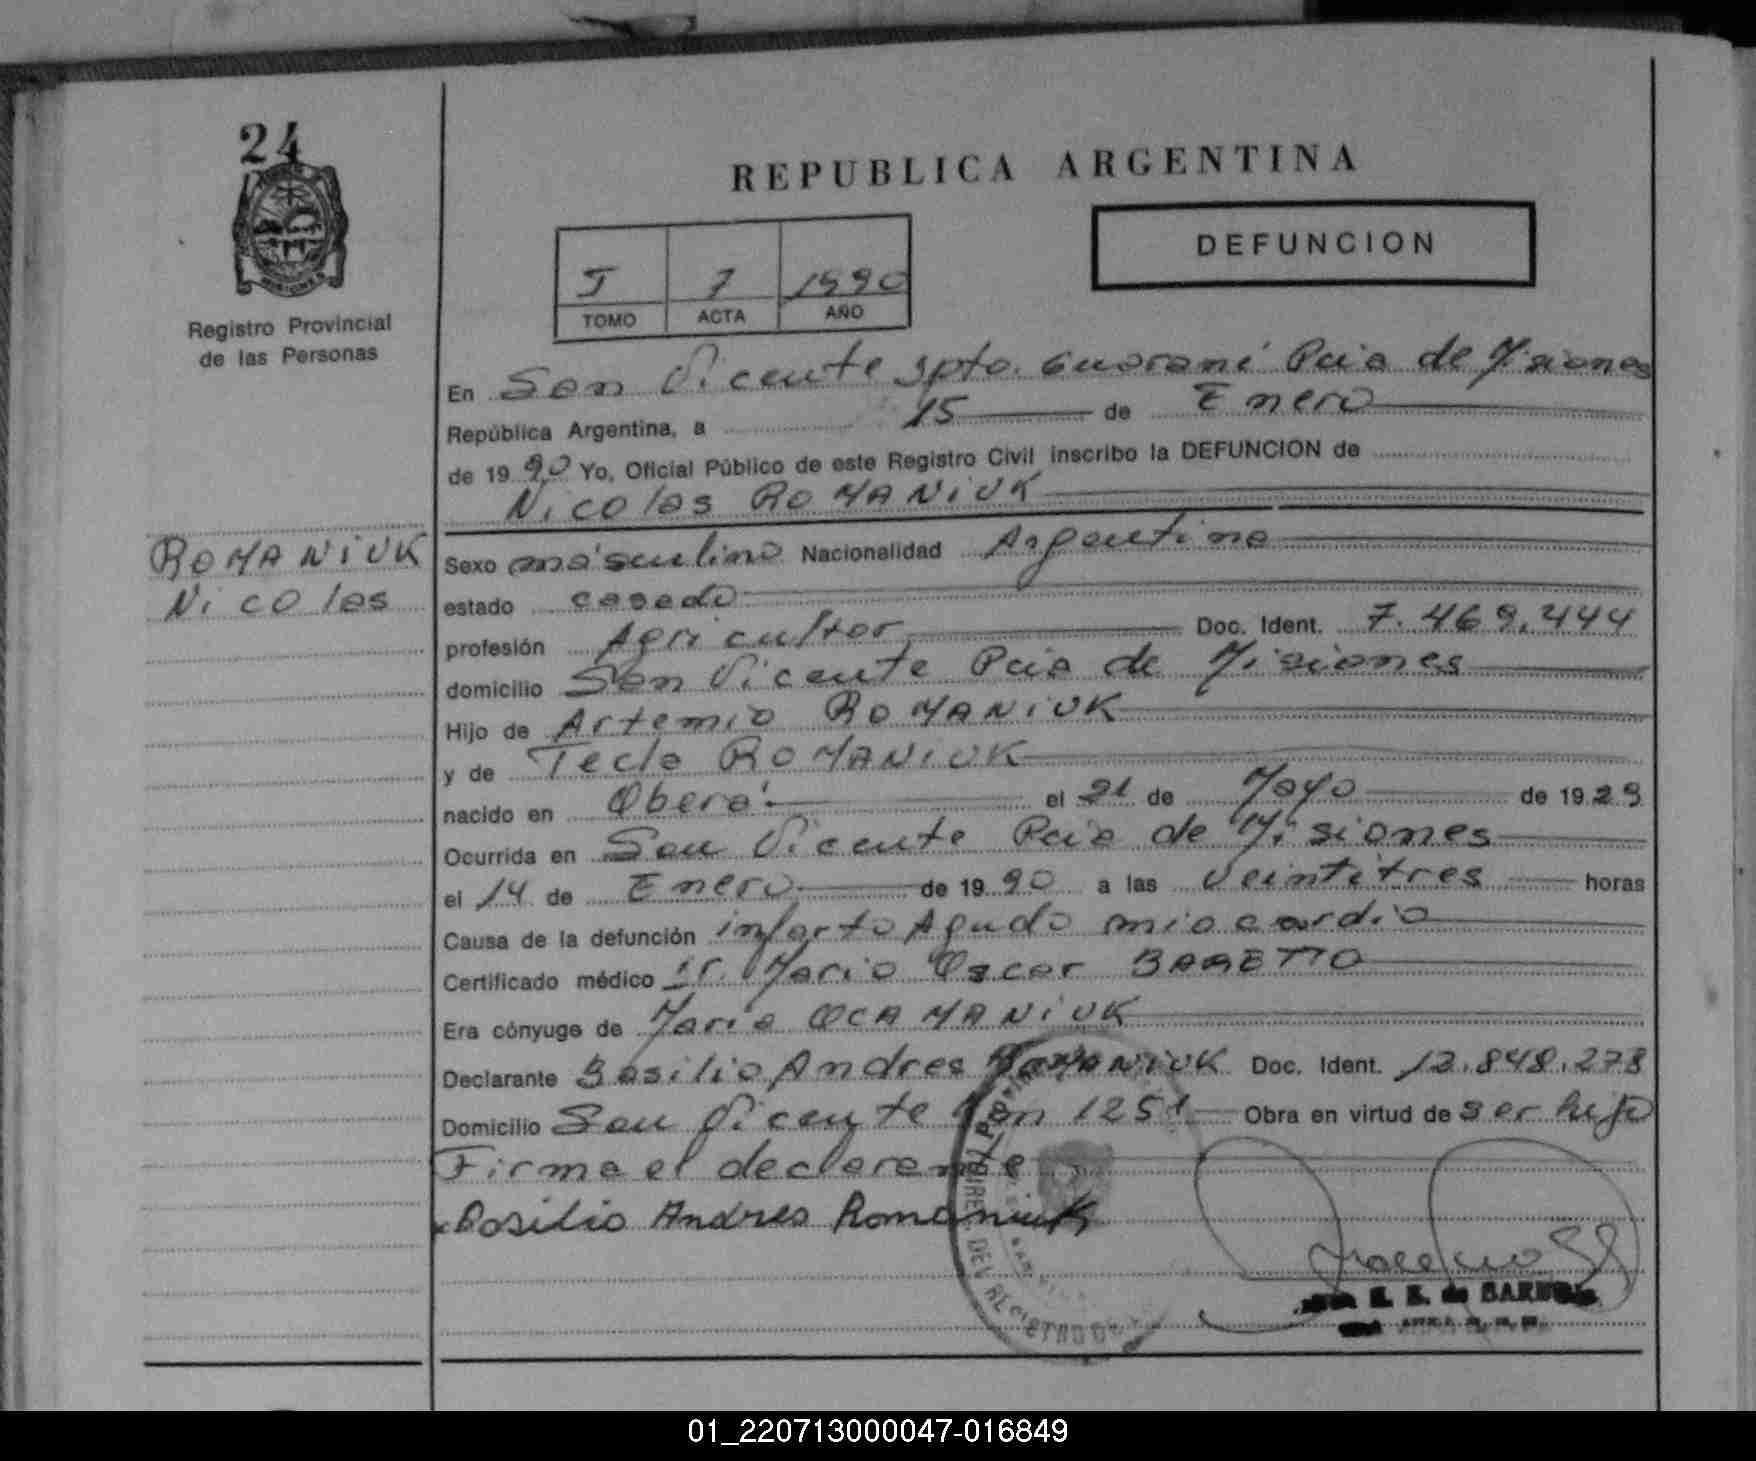 24
REPUBLICA ARGENTINA
DEFUNCION
I 7 1990
TOMO ACTA AÑO
MISIONES
Registro Provincial
de las Personas
En San Vicente Dpto. Guaraní Pcia de Misiones
República Argentina, a 15 de Enero
de 1990 Yo, Oficial Público de este Registro Civil inscribo la DEFUNCION de
Nicolas ROMANiUK
ROMANiUK
Nicolas
Sexo masculino Nacionalidad Argentina
estado casado
profesión Agricultor Doc. Ident. 7.469.444
domicilio San Vicente Pcia de Misiones
Hijo de Artemio ROMANiUK
y de Tecla ROMANiUK
nacido en Oberá el 21 de Mayo de 1929
Ocurrida en San Vicente Pcia de Misiones
el 14 de Enero de 1990 a las Veintitres horas
Causa de la defunción infarto Agudo miocardio
Certificado médico Dr. Mario Oscar
Era cónyuge de María
Declarante Basilio Andres ROMANiUK Doc. Ident. 12.848.278
Domicilio San Vicente 1251 Obra en virtud de ser hijo
Firma el declarante
Basilio Andres Romaniuk
01_220713000047-016849